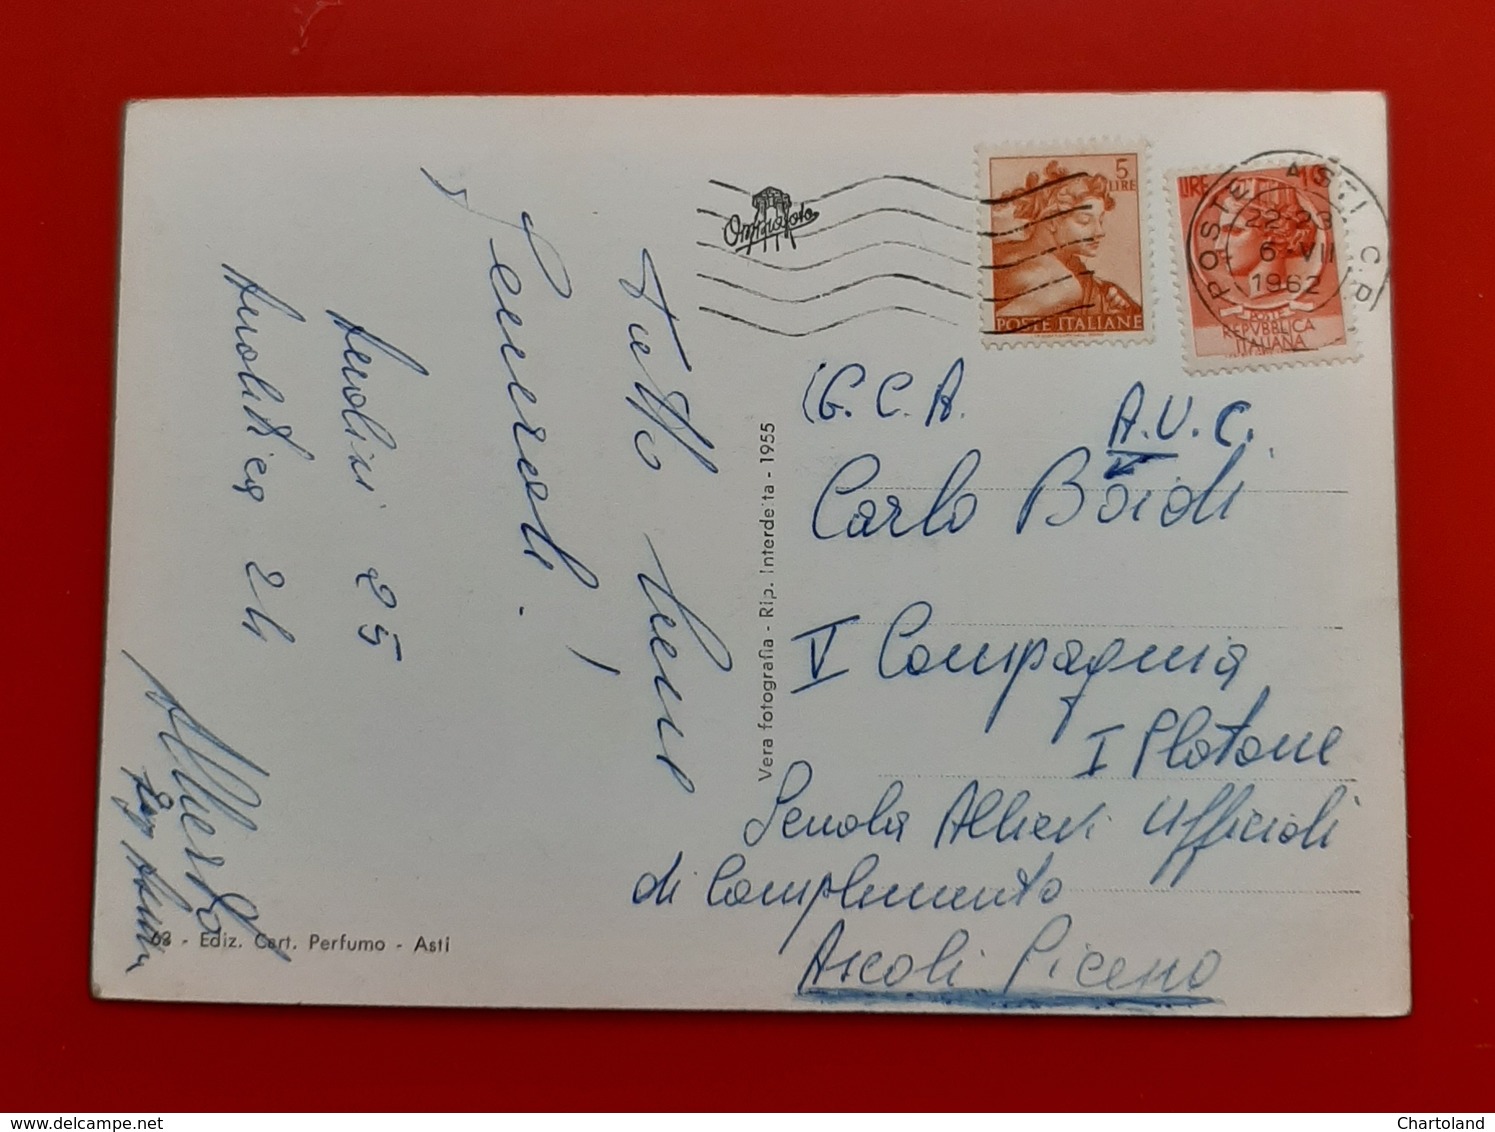 Tutto bene
Generali!
25
24
Alberto
63 - Ediz. Cart. Perfumo - Asti
Vera fotografia - Rip. Interdetta - 1955
Ominofoto
5
LIRE
POSTE ITALIANE
LIRE
POSTE
REPVBBLICA
ITALIANA
POSTE ASTI C.P.
22-23
6-VII
1962
G.C.A.
A.U.C.
Carlo Boidi
V Compagnia
I Plotone
Scuola Allievi Ufficiali
di Complemento
Ascoli Piceno
delcampe.net
Chartoland